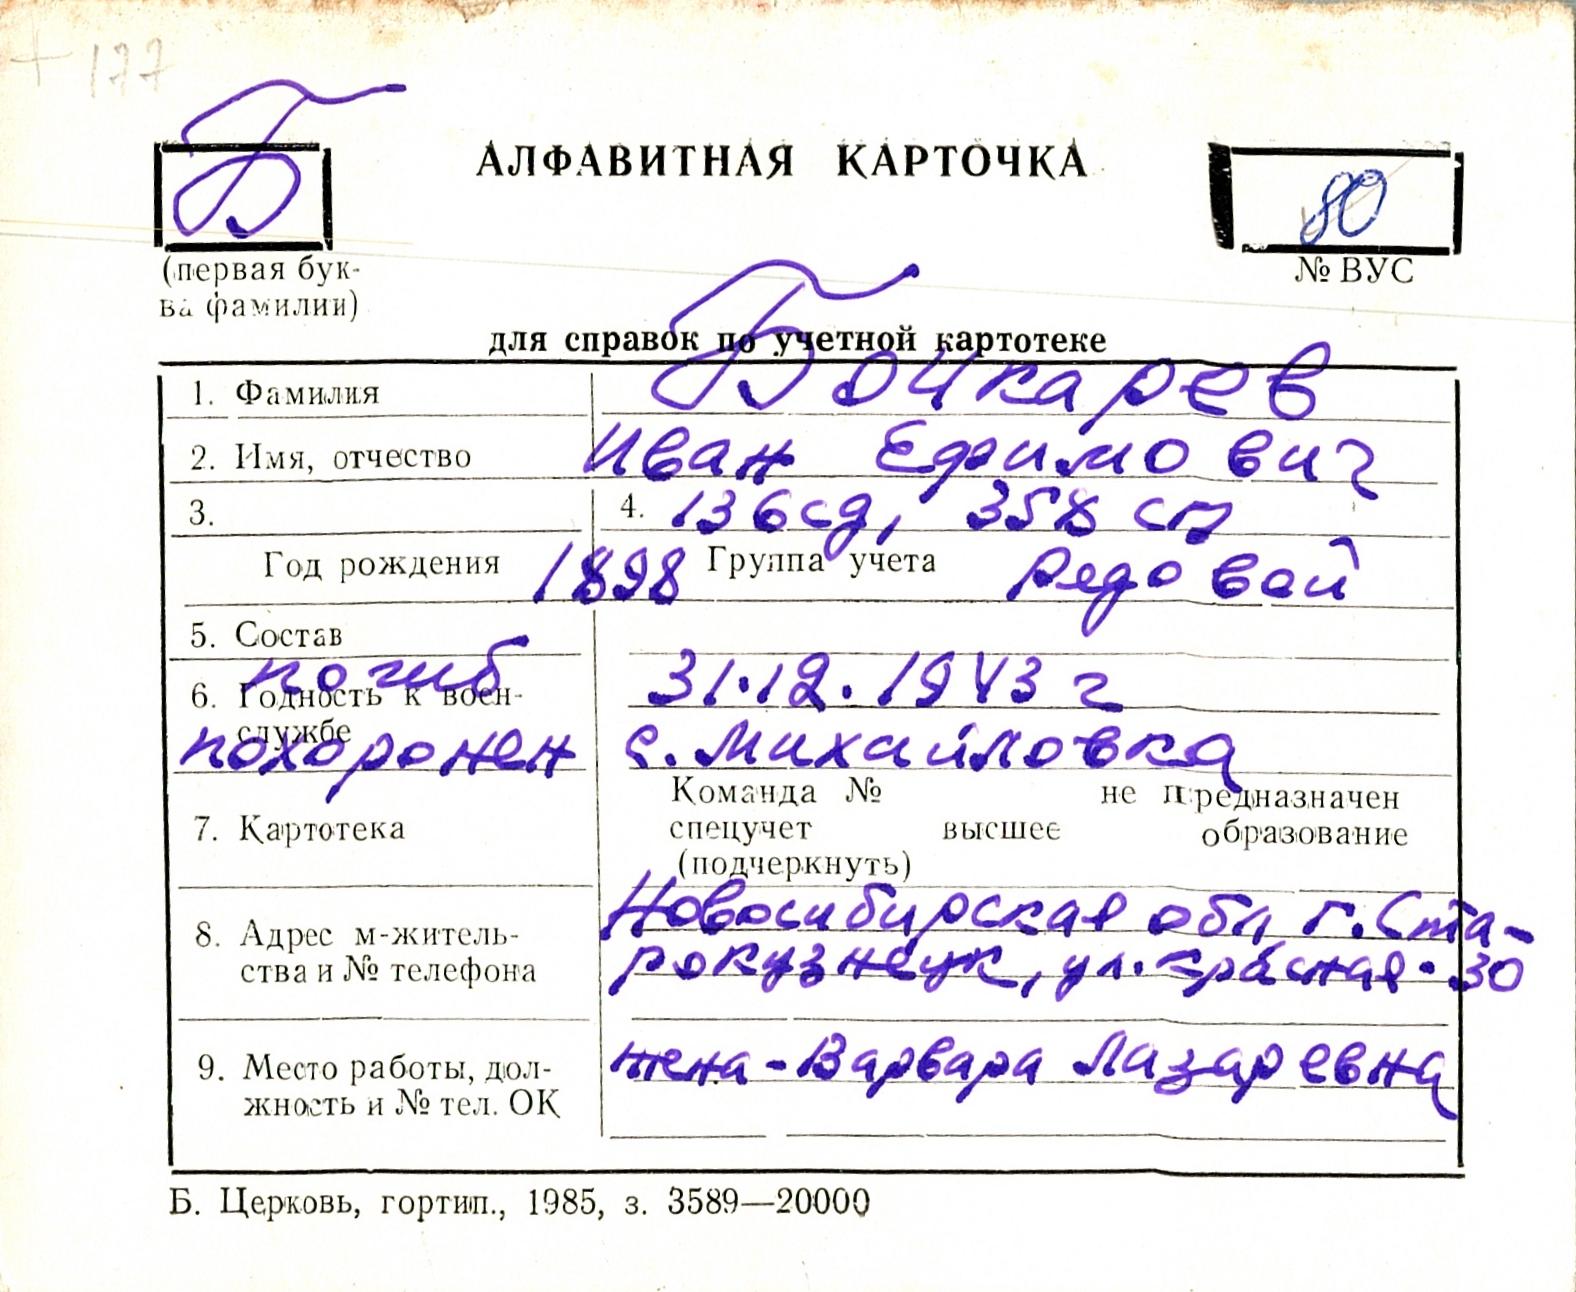 + 177
Б
АЛФАВИТНАЯ КАРТОЧКА
80
(первая бук-
ва фамилии)
№ ВУС
для справок по учетной картотеке
1. Фамилия Бочкарев
2. Имя, отчество Иван Ефимович
3. 4. 136сд, 358 сп
Год рождения 1898 Группа учета рядовой
5. Состав
погиб 31.12.1943 г
6. Годность к воен-
службе
похоронен с. Михайловка
Команда № не предназначен
7. Картотека спецучет высшее образование
(подчеркнуть)
Новосибирская обл, г. Ста-
8. Адрес м-житель-
ства и № телефона рокузнецк, ул. Красная - 30
9. Место работы, дол- жена - Варвара Лазаревна
жность и № тел. ОК
Б. Церковь, гортип., 1985, з. 3589—20000